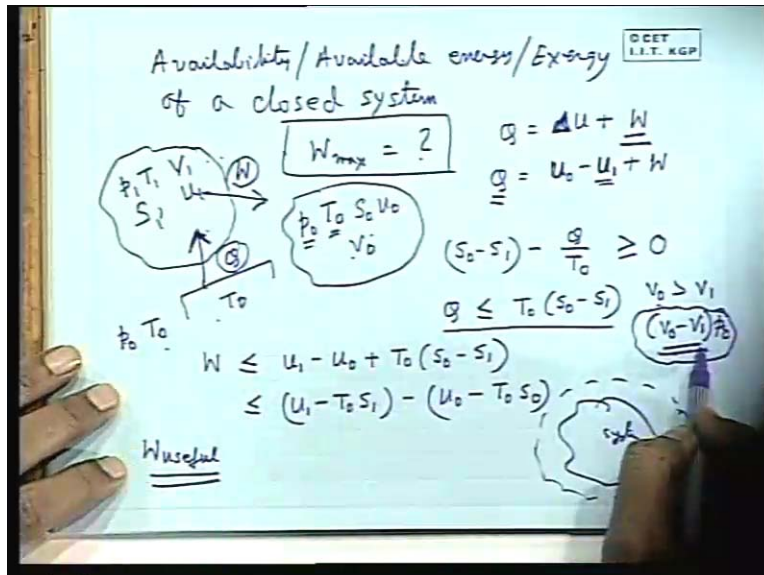 © CET
I.I.T. KGP
Availability/Available energy/Exergy
of a closed system
Wmax = ?
Q = Δu + W
Q = u0 - u1 + W
p1 T1 V1
u1
S1
W
p0 T0 S0 u0
V0
Q
T0
p0 T0
(S0-S1) - Q/T0 ≥ 0
Q ≤ T0 (S0-S1)
V0 > V1
(V0-V1)p0
W ≤ u1 - u0 + T0 (S0-S1)
≤ (u1 - T0 S1) - (u0 - T0 S0)
Wuseful